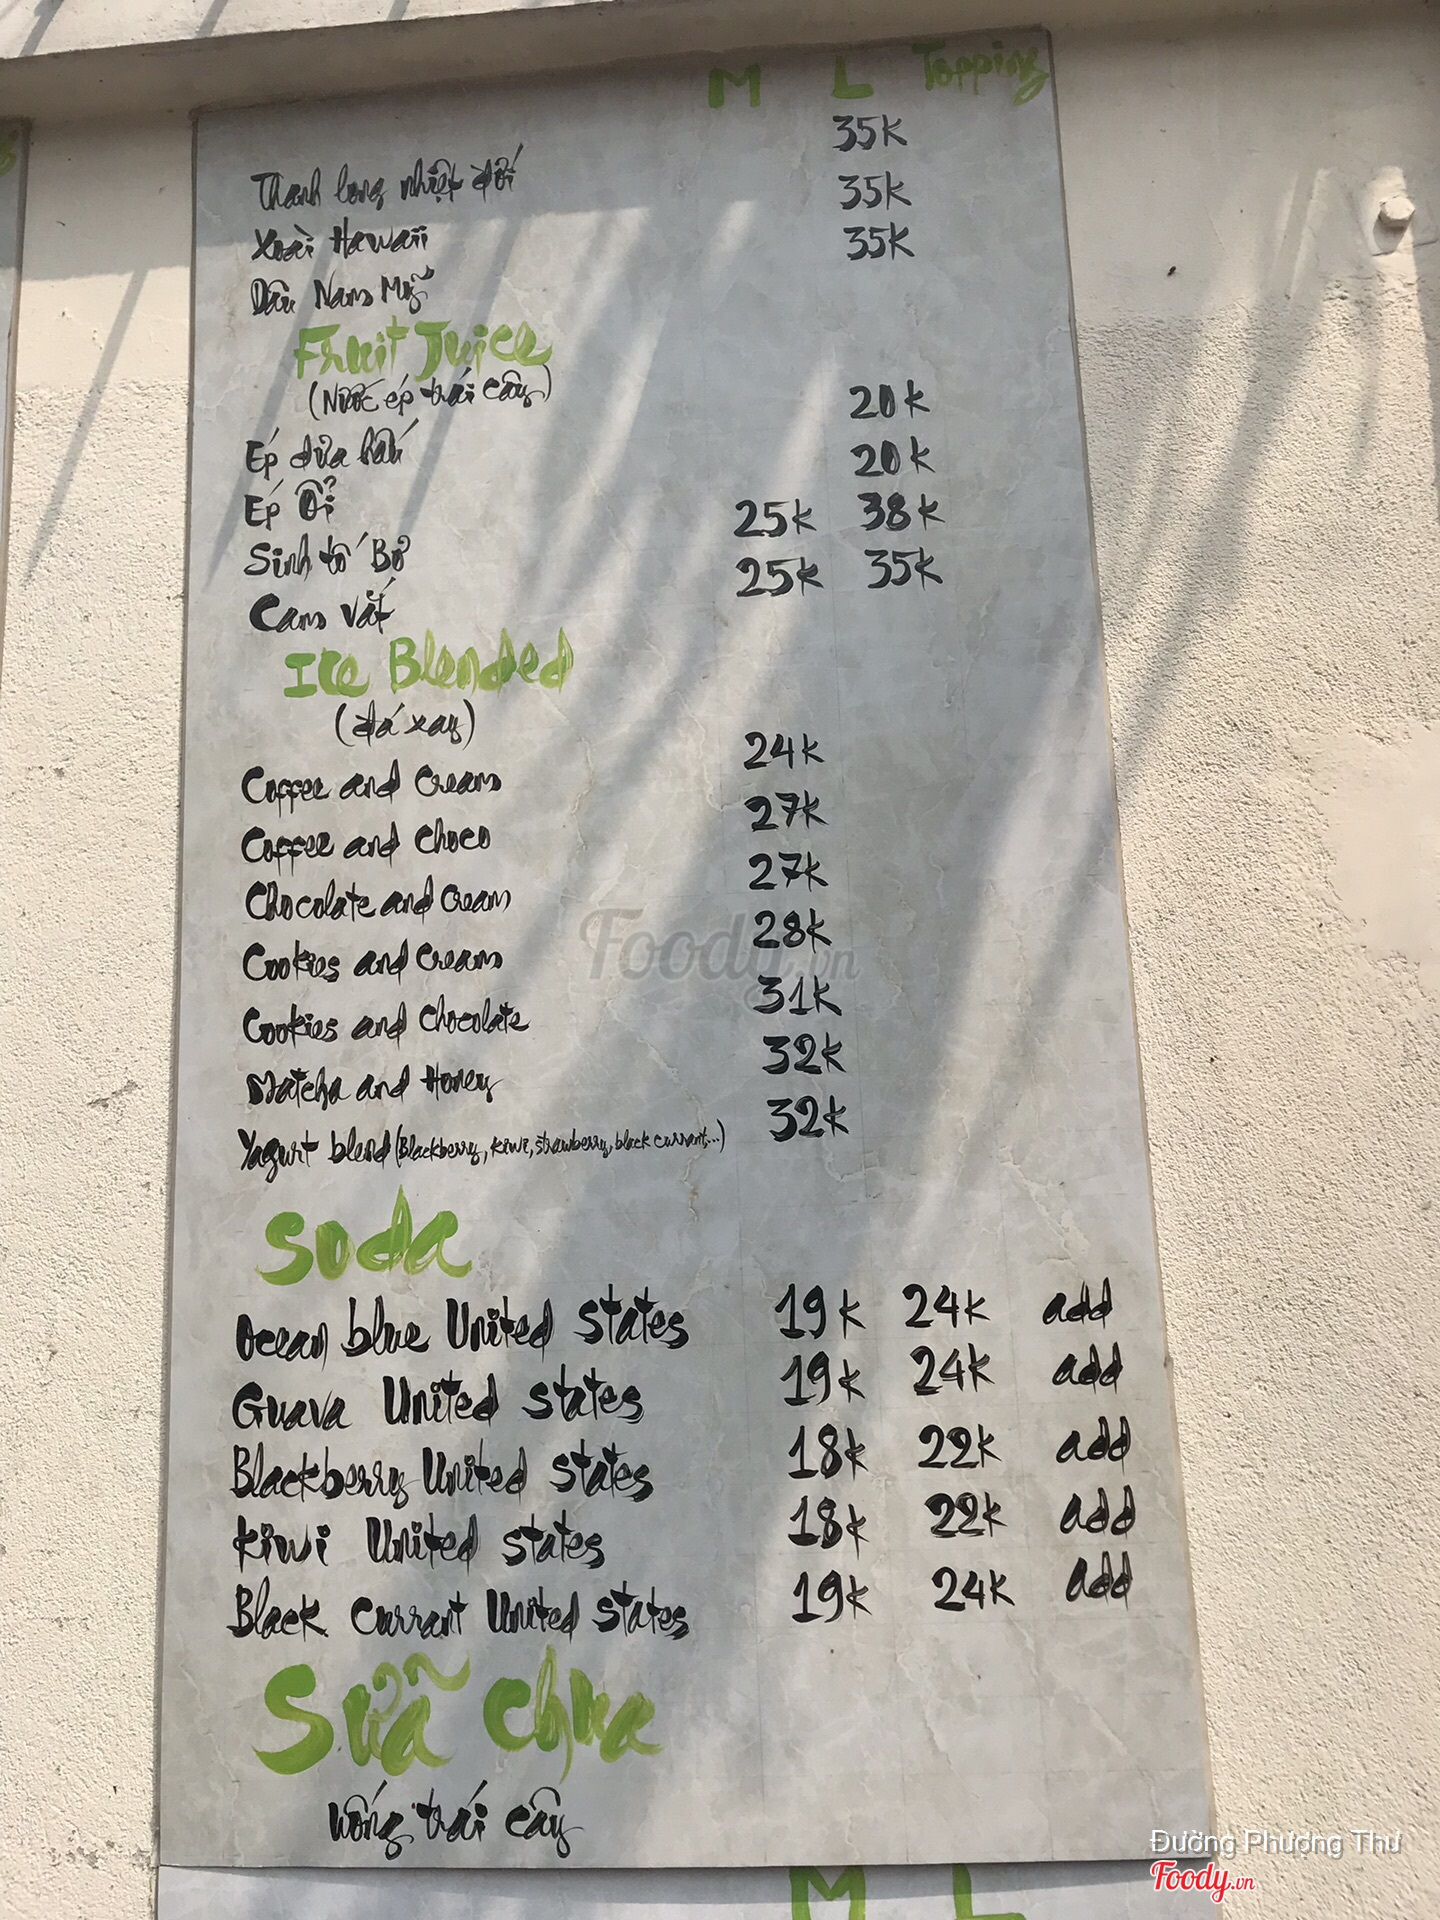 M L Topping
Thanh long nhiệt đới 35K
Xoài Hawaii 35K
Dâu Nam Mỹ 35K
Fruit Juice
(Nước ép trái cây)
Ép dưa hấu 20K
Ép Ổi 20K
Sinh tố Bơ 25K 38K
Cam vắt 25K 35K
Ice Blended
(đá xay)
Coffee and Cream 24K
Coffee and Choco 27K
Chocolate and Cream 27K
Cookies and Cream 28K
Cookies and Chocolate 31K
Matcha and Honey 32K
Yagurt blend (Blackberry, kiwi, strawberry, black currant,...) 32K
Soda
Ocean blue United States 19K 24K add
Guava United States 19K 24K add
Blackberry United States 18K 22K add
Kiwi United States 18K 22K add
Black Currant United States 19K 24K add
Sữa Chua
Uống trái cây
M L
Foody.vn
Đường Phượng Thư
Foody.vn